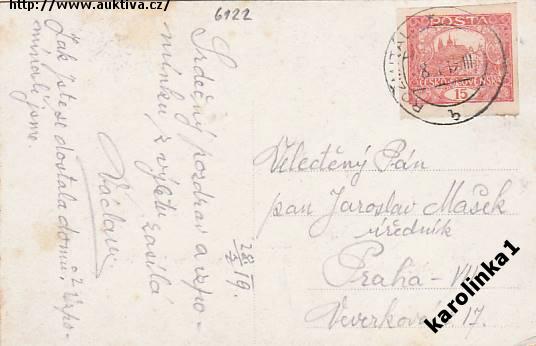 http://www.auktiva.cz/
6122
POSTA
ČESKOSLOVENSKÁ
15
Srdečný pozdrav a vzpo-
mínku z výletu zasílá
Václav
28/X 19.
Jak jste se dostala domů?
Vzpo-
mínali jsme
Velectěný Pán
pan Jaroslav Mašek
úředník
Praha - VII
Veverkova ul. 17.
karolinka1